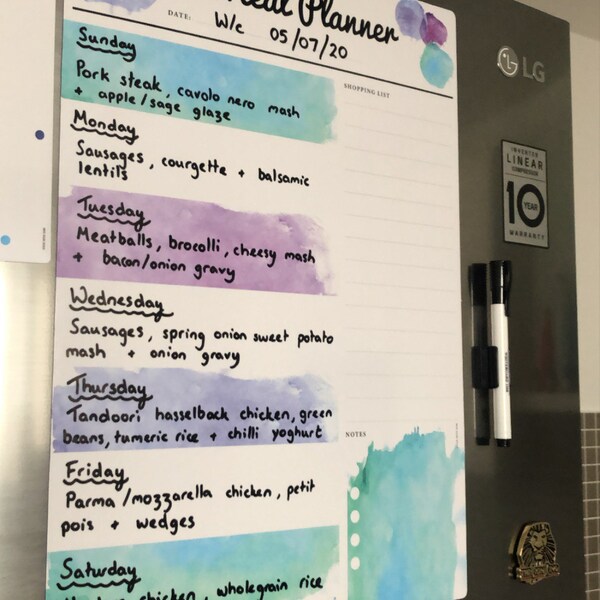 Meal Planner
DATE: W/c 05/07/20
Sunday
Pork steak, cavolo nero mash
+ apple/sage glaze
Monday
Sausages, courgette + balsamic
lentils
Tuesday
Meatballs, brocolli, cheesy mash
+ bacon/onion gravy
Wednesday
Sausages, spring onion sweet potato
mash + onion gravy
Thursday
Tandoori hasselback chicken, green
beans, tumeric rice + chilli yoghurt
Friday
Parma/mozzarella chicken, petit
pois + wedges
Saturday
chicken, wholegrain rice
SHOPPING LIST
NOTES
LG
INVERTER
LINEAR
COMPRESSOR
10 YEAR
WARRANTY